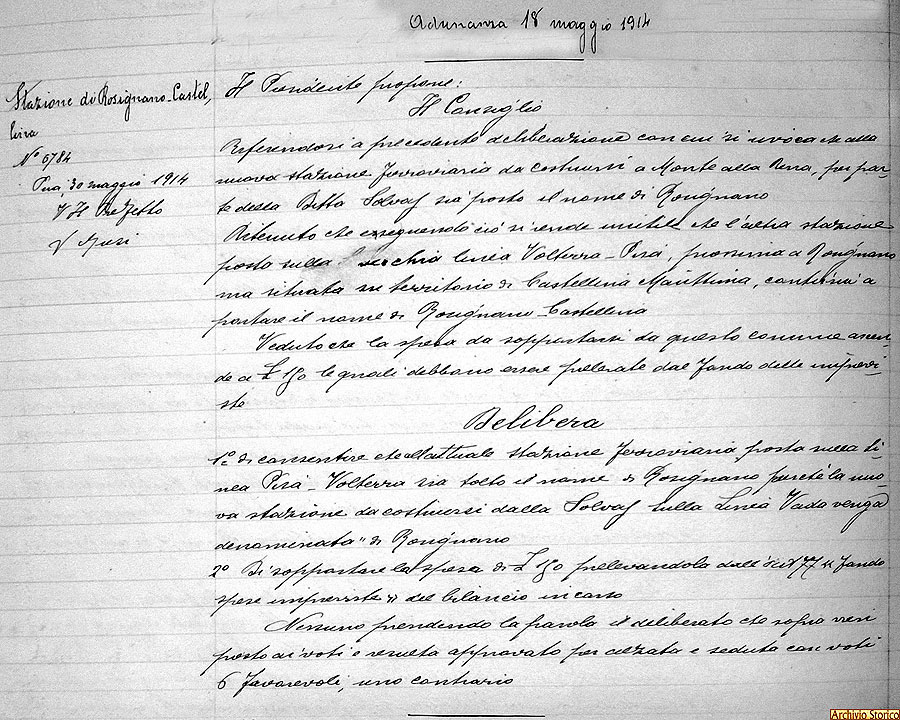 Adunanza 18 maggio 1914
Stazione di Rosignano-Castel,
lina
N° 6784
Pisa, 30 maggio 1914
V Il Prefetto
Il Presidente propone:
Il Consiglio
Riferendosi a precedente deliberazione con cui si invoca che alla
nuova stazione ferroviaria da costruirsi a Monte alla Rena, per par-
te della Ditta Solvay sia posto il nome di Rosignano
Ritenuto che eseguendo ciò si rende inutile che l'altra stazione
posta sulla vecchia linea Volterra-Pisa, prossima a Rosignano
ma situata in territorio di Castellina Marittima, continui a
portare il nome di Rosignano Castellina
Veduto che la spesa da sopportarsi da questo comune ascen-
de a £ 150 le quali debbono essere prelevate dal fondo delle imprevi-
ste
Delibera
1° di consentire che all'attuale stazione ferroviaria posta sulla li-
nea Pisa-Volterra sia tolto il nome di Rosignano perché la nuo-
va stazione da costruirsi dalla Solvay sulla Linea Vada venga
denominata "di Rosignano
2° Di sopportare la spesa di £ 150 prelevandola dall' 77 " Fondo
spese impreviste " del bilancio in corso
Nessuno prendendo la parola il deliberato che sopra vien
posto ai voti e resulta approvato per alzata e seduta con voti
6 favorevoli, uno contrario
Archivio Storico